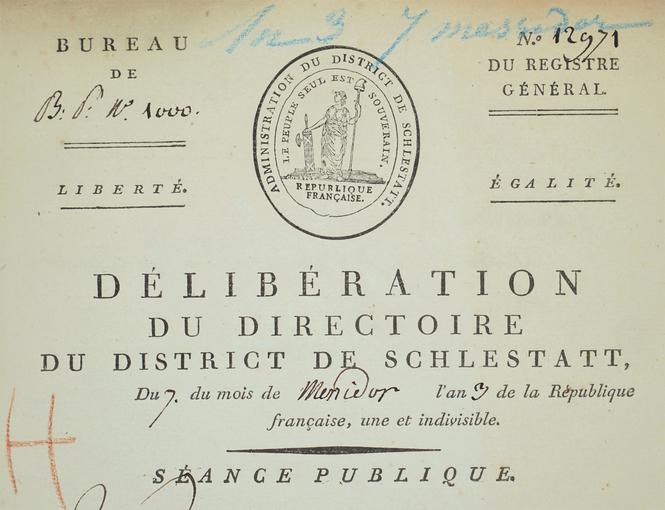 An 3 7 messidor
BUREAU
DE
B: P: Nº 1000.
LIBERTÉ.
ADMINISTRATION DU DISTRICT DE SCHLESTATT.
LE PEUPLE SEUL EST SOUVERAIN.
REPUBLIQUE
FRANÇAISE.
N.º 12971
DU REGISTRE
GÉNÉRAL.
ÉGALITÉ.
DÉLIBÉRATION
DU DIRECTOIRE
DU DISTRICT DE SCHLESTATT,
Du 7. du mois de Messidor l'an 3 de la République
française, une et indivisible.
SÉANCE PUBLIQUE.
H